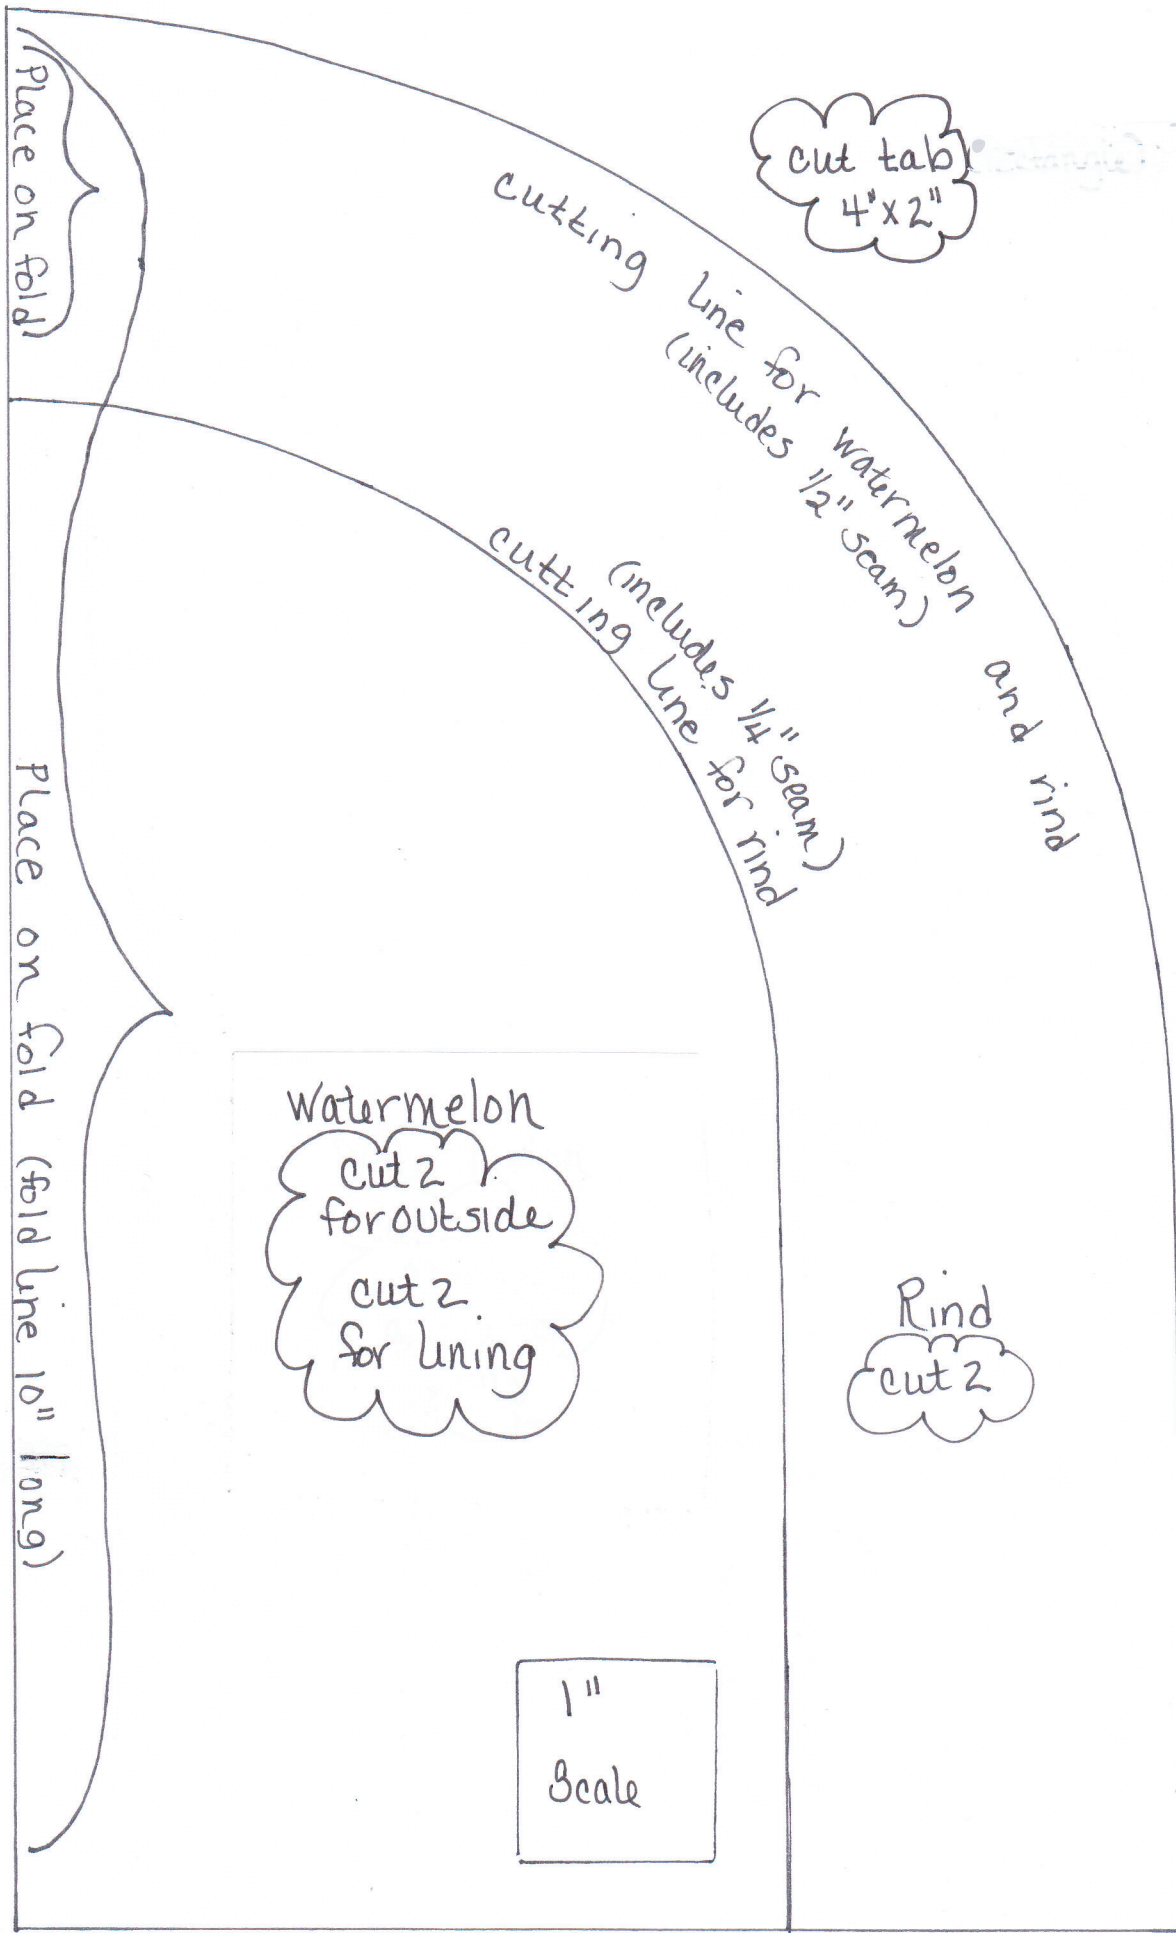 cut tab
4"x2"
(Place on fold)
cutting line for watermelon and rind
(includes 1/2" seam)
(includes 1/4" seam)
cutting line for rind
Place on fold (fold line 10" long)
Watermelon
cut 2
for outside
cut 2
for lining
Rind
cut 2
1"
Scale